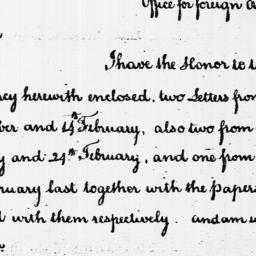 Office for foreign
I have the Honor to
cy herewith enclosed, two Letters from
ber and 14th February, also two from
y and 24th February, and one from
nuary last together with the Papers
d with them respectively. and am